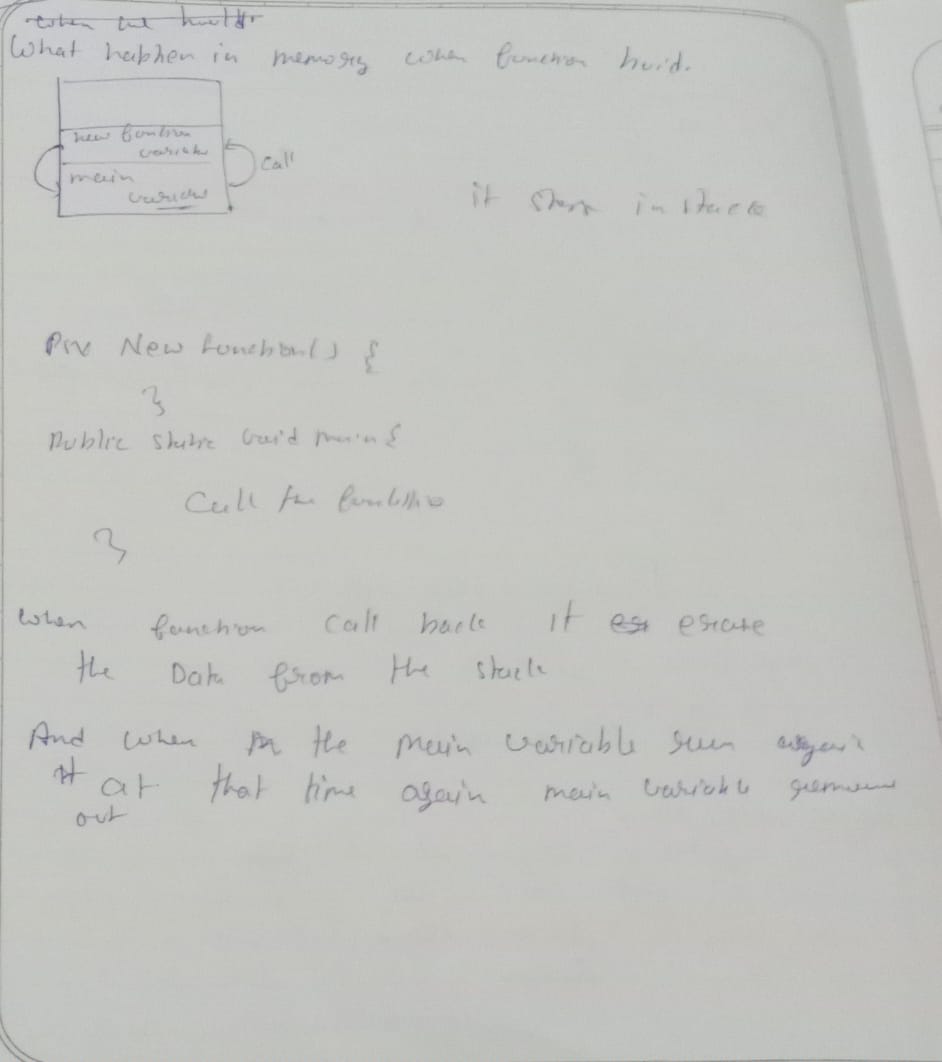 when
What habhen in memory when function buid.
new function
variable
call
main
variable
it store in stack
Prv New function() {
}
Public static void main {
Call the function
}
when function call back it erase
the Data from the stack
And when the main variable run again
at that time again main variable remove
out